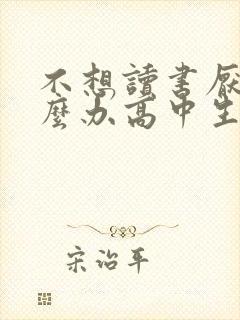 不想讀書厭
麼办高中生
宋治平